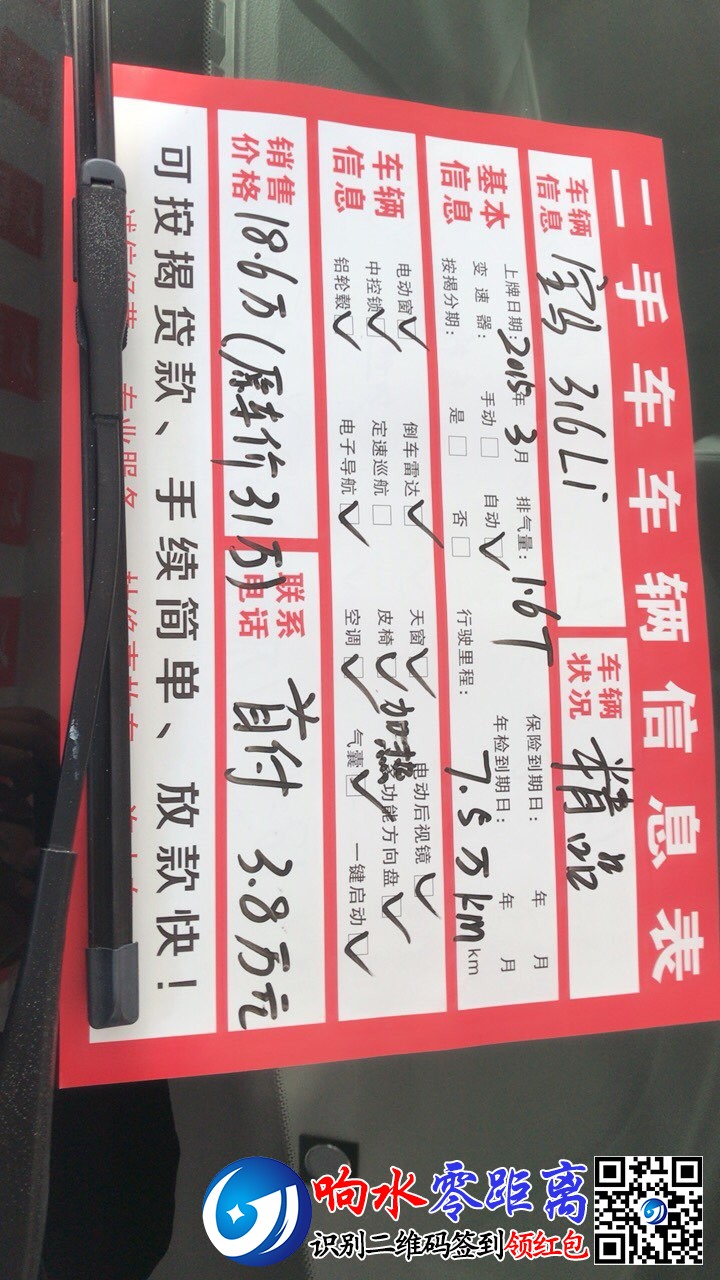 二手车车辆信息表
车辆信息 宝马 316Li 车辆状况 精品
基本信息 上牌日期：2015年 3月 排气量：1.6T 保险到期日： 年 月
变速器： 手动□ 自动□✓ 年检到期日： 年 月
按揭分期： 是□ 否□ 行驶里程： 7.5万km km
车辆信息 电动窗□✓ 倒车雷达□✓ 天窗□✓ 电动后视镜□✓
中控锁□✓ 定速巡航□ 皮椅□✓加热 功能方向盘□✓
铝轮毂□✓ 电子导航□✓ 空调□✓ 气囊□✓ 一键启动□✓
销售价格 18.6万(原车价31万) 联系电话 首付 3.8万元
可按揭贷款、手续简单、放款快！
响水零距离
识别二维码签到领红包